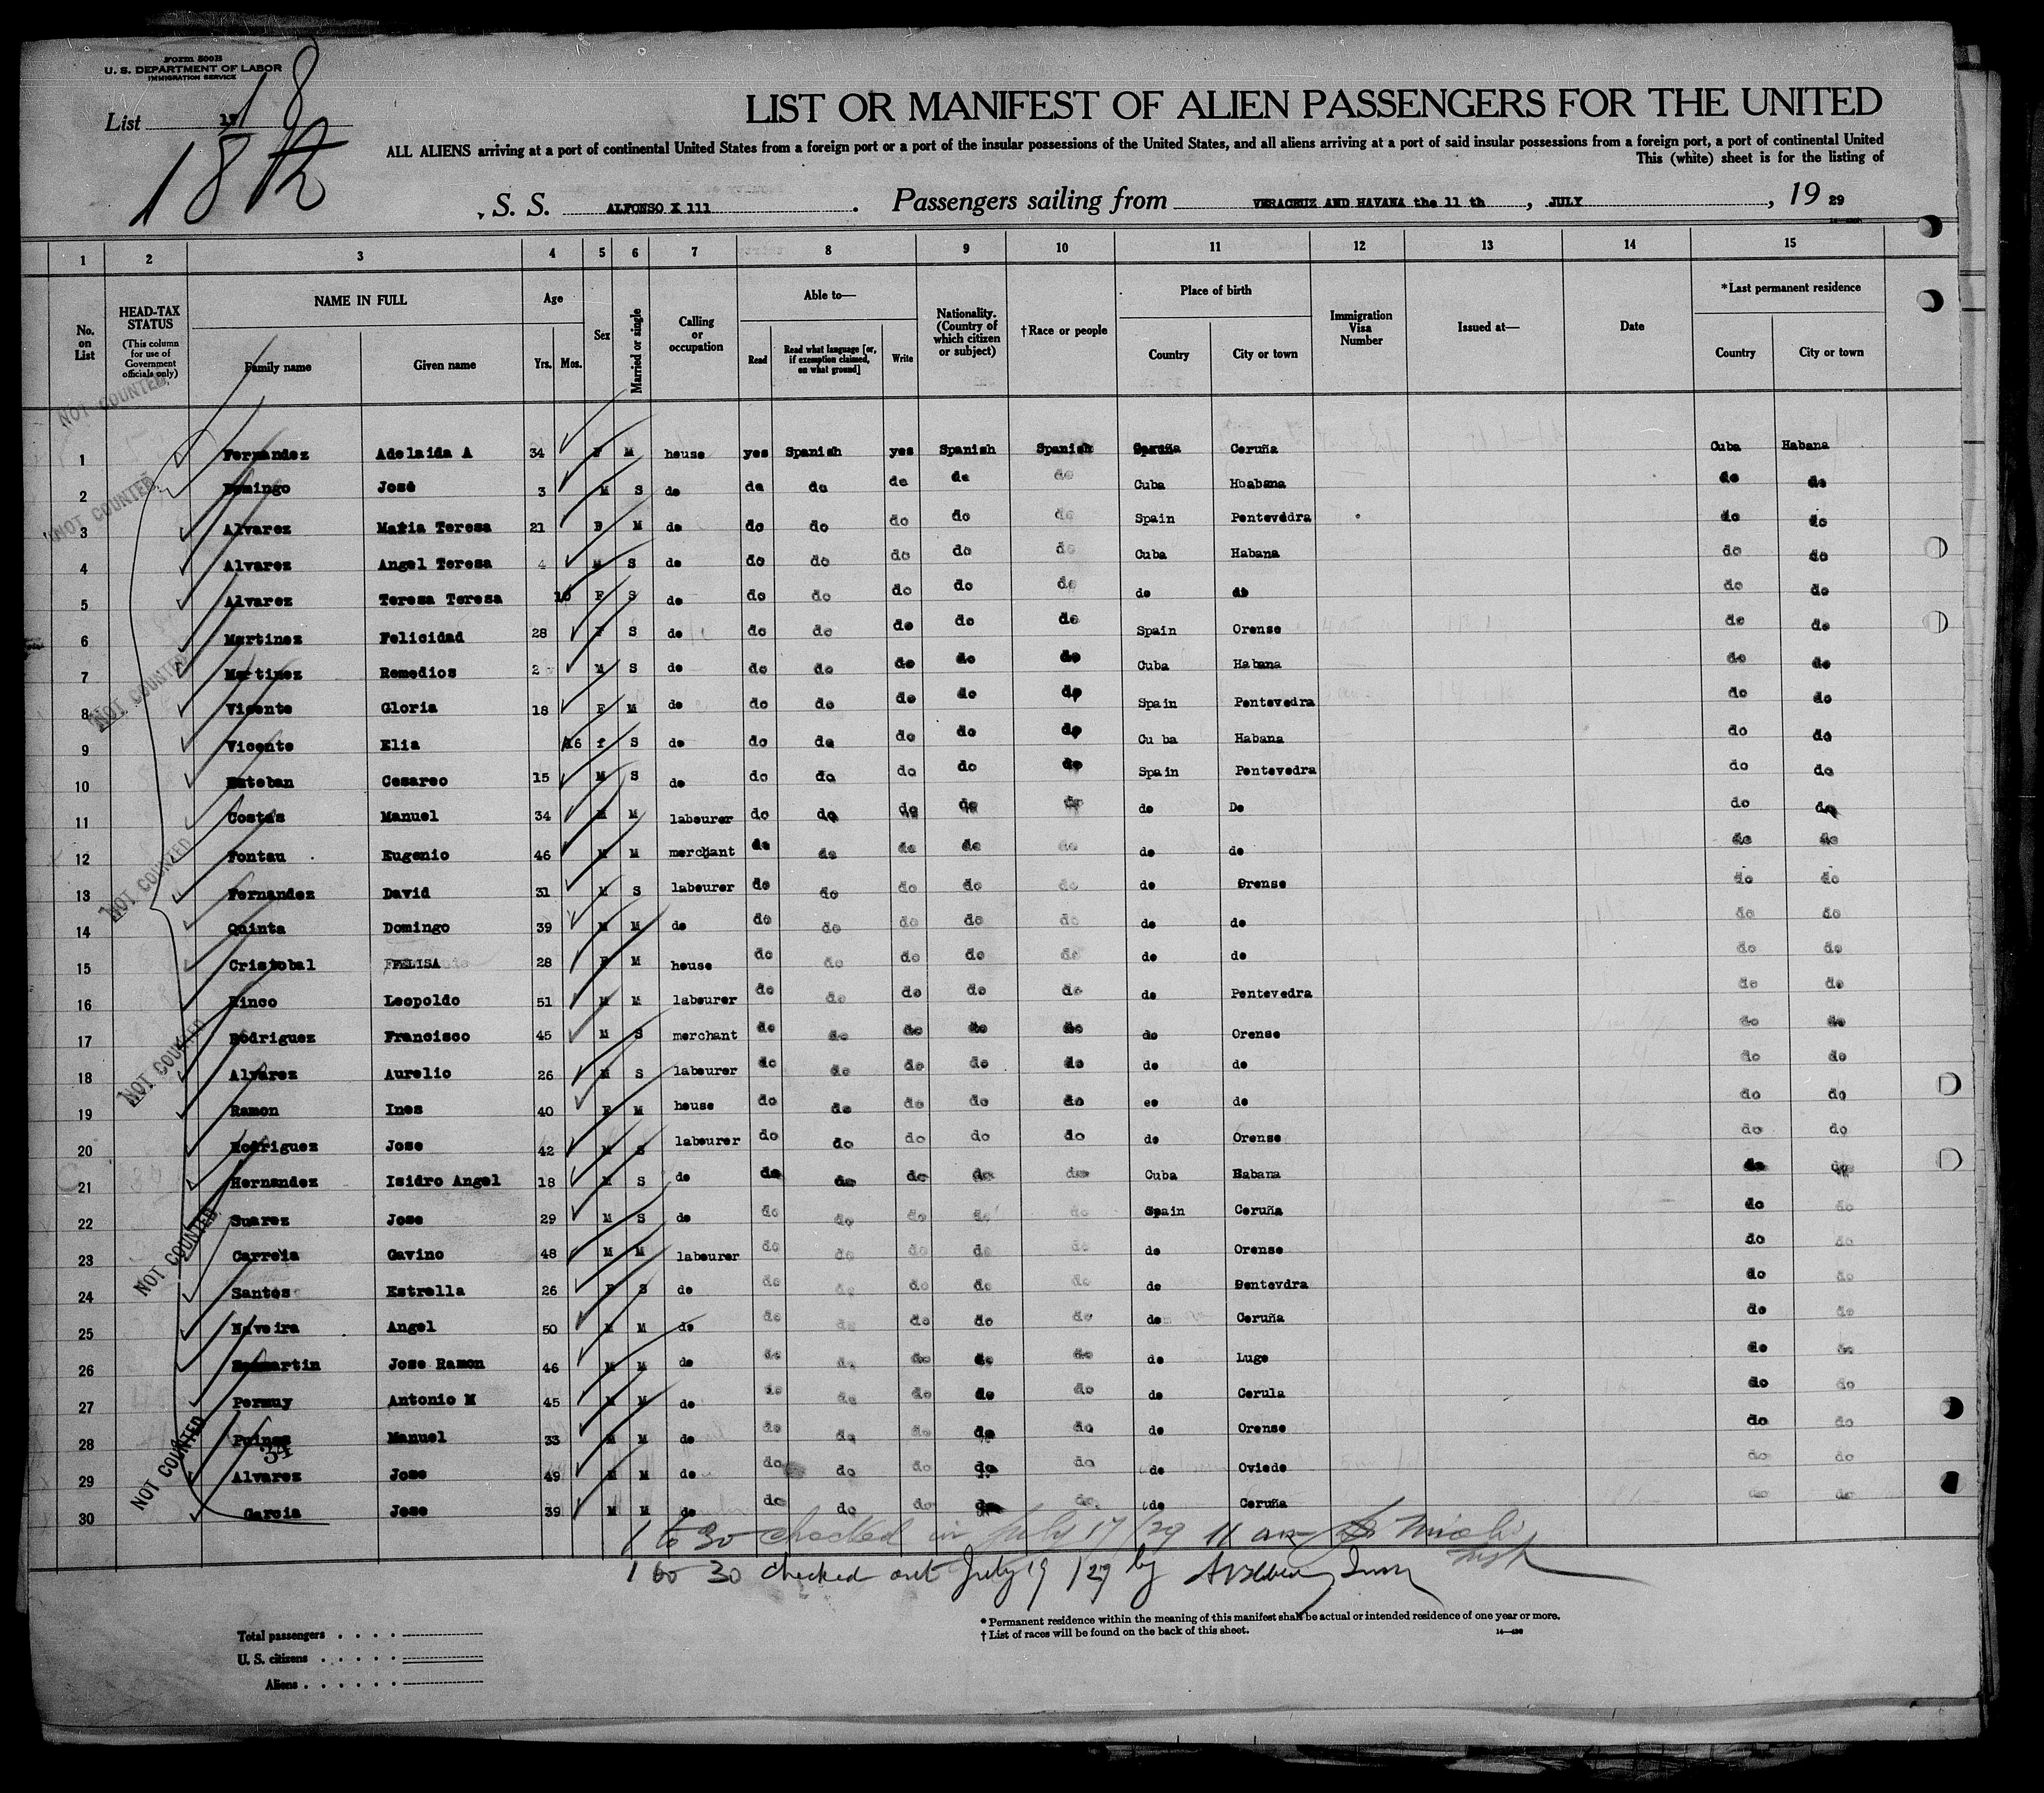 Form 500B
U. S. DEPARTMENT OF LABOR
IMMIGRATION SERVICE
List 18
18th
LIST OR MANIFEST OF ALIEN PASSENGERS FOR THE UNITED
ALL ALIENS arriving at a port of continental United States from a foreign port or a port of the insular possessions of the United States, and all aliens arriving at a port of said insular possessions from a foreign port, a port of continental United
This (white) sheet is for the listing of
S. S. ALFONSO X 111 . Passengers sailing from VERACRUZ AND HAVANA the 11 th , JULY , 19 29
1 2 3 4 5 6 7 8 9 10 11 12 13 14 15
No. on List
HEAD-TAX STATUS
(This column for use of Government officials only)
NAME IN FULL
Family name Given name
Age
Yrs. Mos.
Sex
Married or single
Calling or occupation
Able to—
Read Read what language [or, if exemption claimed, on what ground] Write
Nationality. (Country of which citizen or subject)
†Race or people
Place of birth
Country City or town
Immigration Visa Number
Issued at—
Date
*Last permanent residence
Country City or town
1 Fernandez Adelaida A 34 F M house yes Spanish yes Spanish Spanish Coruña Coruña Cuba Habana
2 Domingo José 3 M S do do do do do do Cuba Hbabana do do
3 Alvarez Maria Teresa 21 F M do do do do do do Spain Pontevedra do do
4 Alvarez Angel Teresa 4 M S do do do do do do Cuba Habana do do
5 Alvarez Teresa Teresa 10 F S do do do do do do do do do do
6 Martinez Felicidad 28 F S do do do do do do Spain Orense do do
7 Martinez Remedios 2 M S do do do do do do Cuba Habana do do
8 Vicente Gloria 18 F M do do do do do do Spain Pontevedra do do
9 Vicente Elia 16 f S do do do do do do Cu ba Habana do do
10 Esteban Cesareo 15 M S do do do do do do Spain Pontevedra do do
11 Costas Manuel 34 M M labourer do do do do do do De do do
12 Fontau Eugenio 46 M M merchant do do do do do do do do do
13 Fernandez David 31 M S labourer do do do do do do Orense do do
14 Quinta Domingo 39 M M do do do do do do do do do do
15 Cristobal FELISA 28 F M house do do do do do do do do do
16 Rinco Leopoldo 51 M M labourer do do do do do do Pontevedra do do
17 Rodriguez Francisco 45 M S merchant do do do do do do Orense do do
18 Alvarez Aurelio 26 M S labourer do do do do do do do do do
19 Ramon Ines 40 F M house do do do do do eo do do do
20 Rodriguez Jose 42 M S labourer do do do do do do Orense do do
21 Hernandez Isidro Angel 18 M S do do do do do do Cuba Habana do do
22 Suarez Jose 29 M S do do do do do do Spain Coruña do do
23 Carreia Gavino 48 M M labourer do do do do do do Orense do do
24 Santos Estrella 26 F S do do do do do do do Pentevdra do do
25 Naveira Angel 50 M M do do do do do do do Coruña do do
26 Jose Ramon 46 M M do do do do do do do Lugo do do
27 Permuy Antonio M 45 M M do do do do do do do Corula do do
28 Manuel 33 M M do do do do do do do Orense do do
34
29 Alvarez Jose 49 M M do do do do do do do Oviedo do do
30 Garcia Jose 39 M M do do do do do do do Coruña do do
NOT COUNTED
NOT COUNTED
NOT COUNTED
NOT COUNTED
NOT COUNTED
NOT COUNTED
NOT COUNTED
1 to 30 checked in July 17/29 11 am
1 to 30 checked out July 19 /29 by
* Permanent residence within the meaning of this manifest shall be actual or intended residence of one year or more.
† List of races will be found on the back of this sheet.
Total passengers
U. S. citizens
Aliens